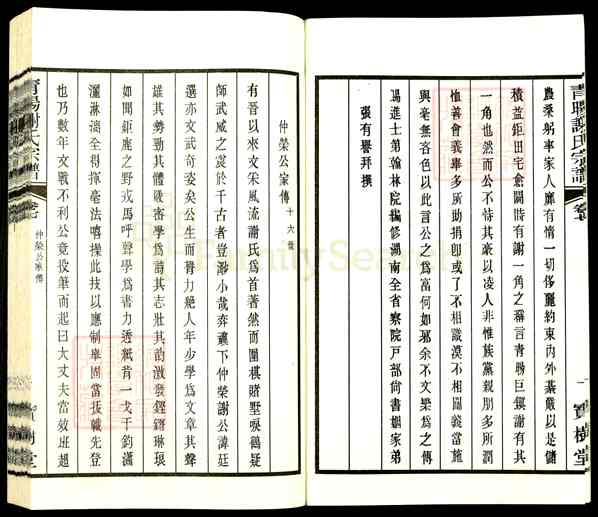 青暘謝氏宗譜
卷七
一
寶樹堂
農桑躬率家人靡有惰一切侈麗約束內外綦嚴以是儲
積益鉅田宅倉闢時有謝一角之羅言青暘巨鎮謝有其
一角也然而公不恃其豪以凌人非惟族黨親朋多所潤
恤善會義舉多所助捐即或了不相識漠不相關義當施
與毫無吝色以此言公之為富何如耶余不文樂為之傳
賜進士第翰林院編修湖南全省察院戶部尚書姻家弟
張有譽拜撰
仲榮公家傳十六世
有晉以來文采風流謝氏為首著然而圍棋賭墅唳鶴疑
師武威之震於千古者豈渺小哉奔禳下仲榮謝公諱廷
選亦文武奇姿矣公生而膂力絕人年少學為文章其聲
雄其勢勁其體嚴密學為詩其志壯其韵激發鏗鏘琳琅
如聞鉅鹿之野戎馬呼聲學為書力透紙背一戈千鈞瀟
灑淋漓全得揮毫法嘻操此技以應制舉固當拔幟先登
也乃數年文戰不利公竟投筆而起曰大丈夫當效班超
青暘謝氏宗譜
卷七
仲榮公家傳
寶樹堂
FamilySearch